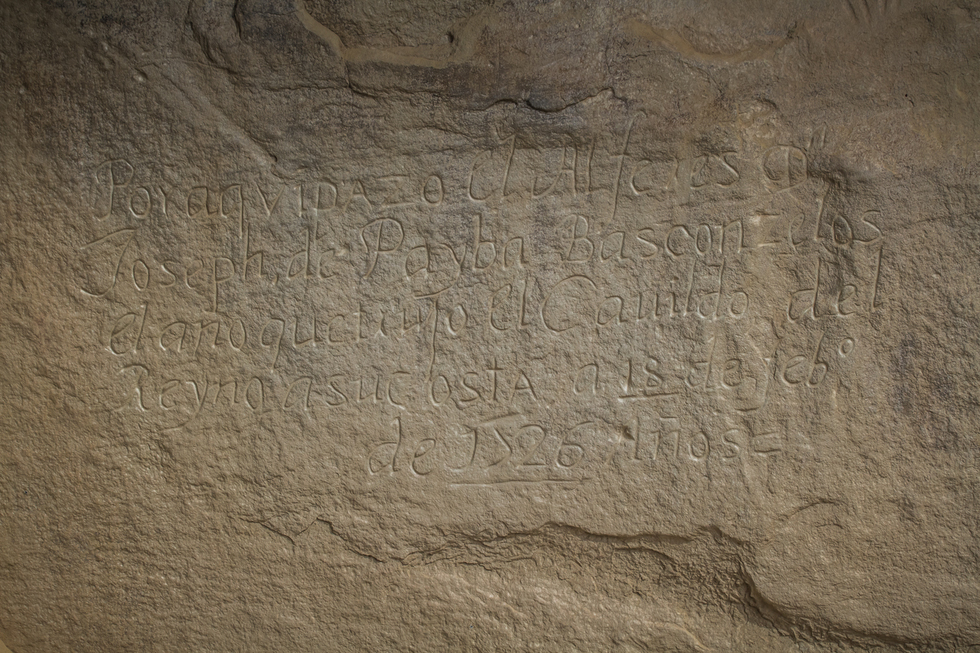 Por aqVIPAZO el Alferes Dn
Joseph de Payba Basconzelos
el año que trujo el Cauildo del
Reyno a su costA a 18 de febo
de 1526 años=